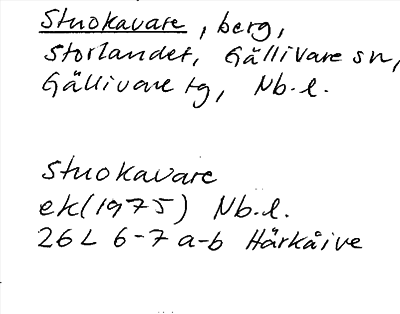 Stuokavare, berg,
Storlandet, Gällivare sn,
Gällivare tg, Nb.l.
Stuokavare
ek(1975) Nb.l.
26L 6-7 a-b Härkåive